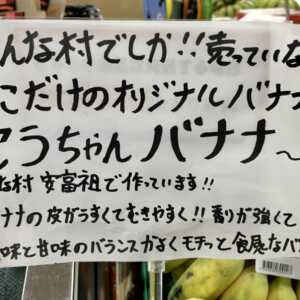 んな村でしか!!売っていな
こだけのオリジナルバナナ
こうちゃんバナナ〜
な村 安富祖で作っています!!
ナナの皮がうすくてむきやすく!!香りが強くて
味と甘味のバランスがよくモチっと食感なバ